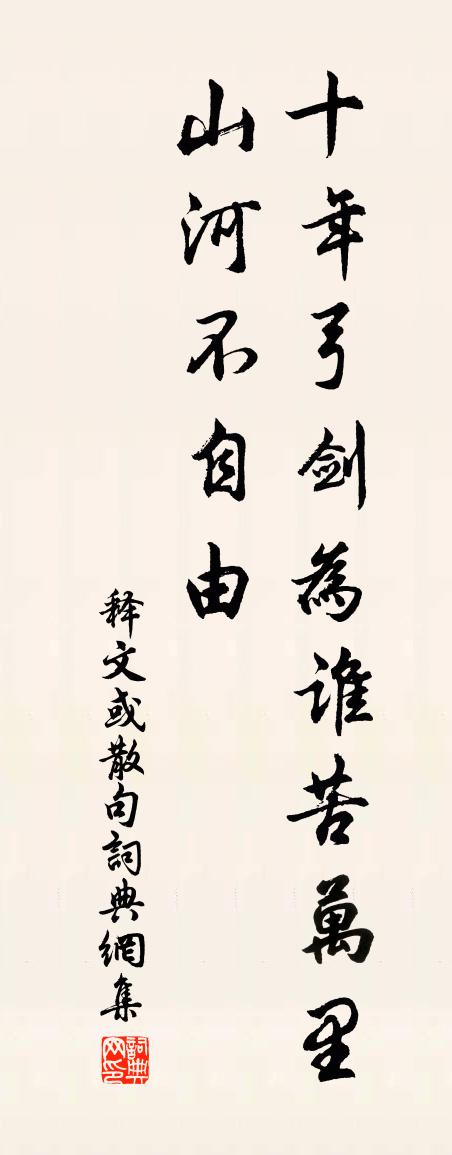 十年弓劍為誰苦萬里
山河不自由
释文或散句詞典網集
詞典网印